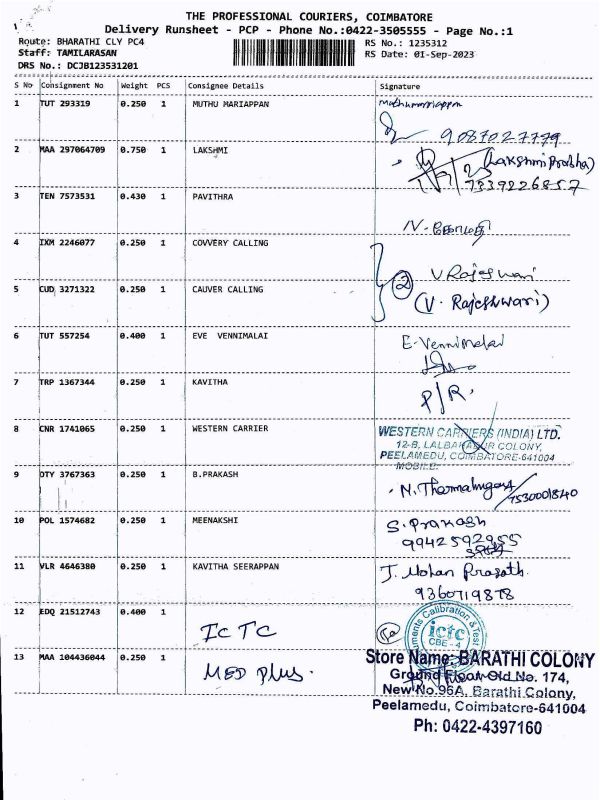 THE PROFESSIONAL COURIERS, COIMBATORE
Delivery Runsheet - PCP - Phone No.:0422-3505555 - Page No.:1
Route: BHARATHI CLY PC4
RS No.: 1235312
Staff: TAMILARASAN
RS Date: 01-Sep-2023
DRS No.: DCJB123531201
S No Consignment No Weight PCS Consignee Details Signature
1 TUT 293319 0.250 1 MUTHU MARIAPPAN
9087027779
2 MAA 297064709 0.750 1 LAKSHMI (Lakshmi Prabha)
7339226857
3 TEN 7573531 0.430 1 PAVITHRA
4 IXM 2246077 0.250 1 COVVERY CALLING V Rajeswari
5 CUD 3271322 0.250 1 CAUVER CALLING 2 (V. Rajeshwari)
6 TUT 557254 0.400 1 EVE VENNIMALAI E. Vennimalai
7 TRP 1367344 0.250 1 KAVITHA P/R.
8 CNR 1741065 0.250 1 WESTERN CARRIER WESTERN CARRIERS (INDIA) LTD.
12-B, LALBAHADUR COLONY,
PEELAMEDU, COIMBATORE-641004
MOBILE:
9 OTY 3767363 0.250 1 B.PRAKASH
7530001840
10 POL 1574682 0.250 1 MEENAKSHI S. Prakash
9942592955
11 VLR 4646380 0.250 1 KAVITHA SEERAPPAN J. Mohan Prasath.
9360719878
12 EDQ 21512743 0.400 1 ICTC
ictc
CBE - 4
13 MAA 104436044 0.250 1 MED Plus.
Store Name: BARATHI COLONY
Ground Floor Old No. 174,
New No.96A, Barathi Colony,
Peelamedu, Coimbatore-641004
Ph: 0422-4397160